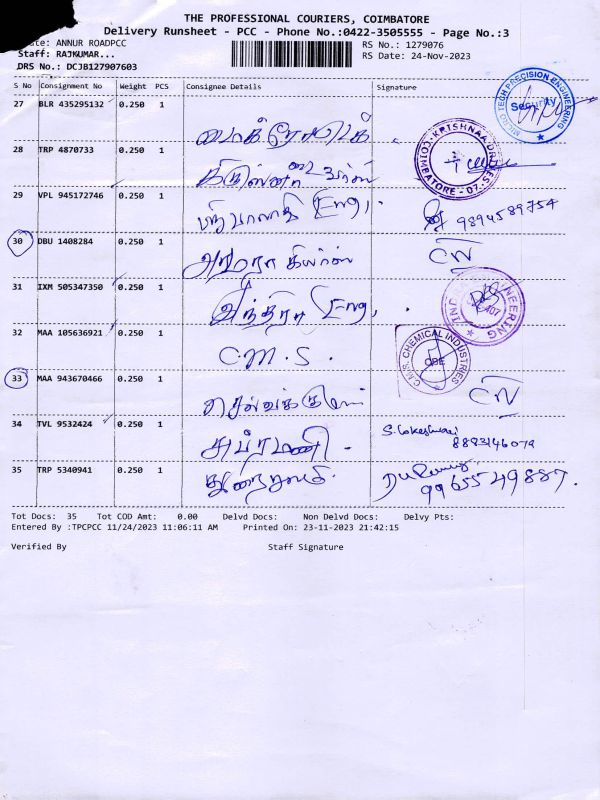 THE PROFESSIONAL COURIERS, COIMBATORE
Delivery Runsheet - PCC - Phone No.:0422-3505555 - Page No.:3
ANNUR ROADPCC
RS No.: 1279076
Staff: RAJKUMAR...
RS Date: 24-Nov-2023
DRS No.: DCJB127907603
S No Consignment No Weight PCS Consignee Details Signature
27 BLR 435295132 0.250 1
MICRO TECH PRECISION ENGINEERING
Security
28 TRP 4870733 0.250 1
COIMBATORE - 07.
29 VPL 945172746 0.250 1
Eng,
9894589754
30 DBU 1408284 0.250 1
CN
31 IXM 505347350 0.250 1
இந்திரா Eng,
32 MAA 105636921 0.250 1
C.M.S.
C.M.S. CHEMICAL INDUSTRIES
CBE
33 MAA 943670466 0.250 1
செல்வக்குமார்
CN
34 TVL 9532424 0.250 1
சுப்ரமணி
S. Lokeshwari
8883146079
35 TRP 5340941 0.250 1
துரைராஜ்
9965549887.
Tot Docs: 35 Tot COD Amt: 0.00 Delvd Docs: Non Delvd Docs: Delvy Pts:
Entered By :TPCPCC 11/24/2023 11:06:11 AM Printed On: 23-11-2023 21:42:15
Verified By Staff Signature